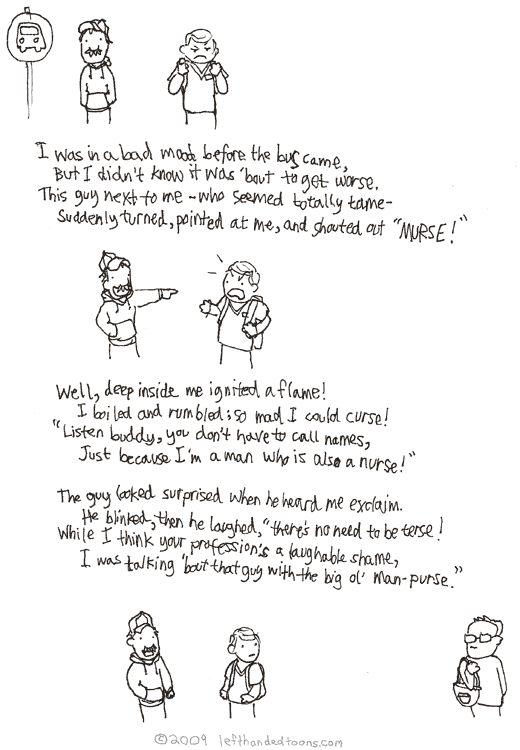 I was in a bad mood before the bus came,
But I didn't know it was 'bout to get worse.
This guy next to me -who seemed totally tame-
Suddenly turned, pointed at me, and shouted out "MURSE!"
Well, deep inside me ignited a flame!
I boiled and rumbled; so mad I could curse!
"Listen buddy, you don't have to call names,
Just because I'm a man who is also a nurse!"
The guy looked surprised when he heard me exclaim.
He blinked, then he laughed, "there's no need to be terse!
While I think your profession's a laughable shame,
I was talking 'bout that guy with the big ol' Man-purse."
©2009 lefthandedtoons.com